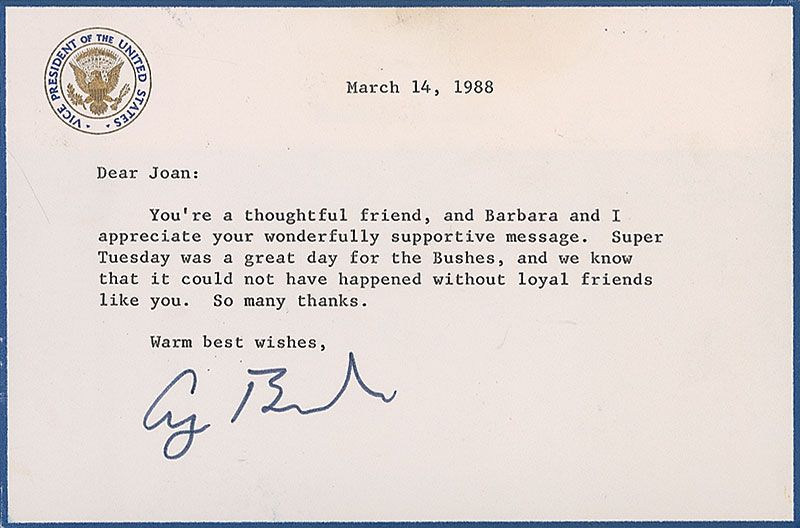 VICE PRESIDENT OF THE UNITED STATES
March 14, 1988
Dear Joan:
You're a thoughtful friend, and Barbara and I
appreciate your wonderfully supportive message. Super
Tuesday was a great day for the Bushes, and we know
that it could not have happened without loyal friends
like you. So many thanks.
Warm best wishes,
Bush